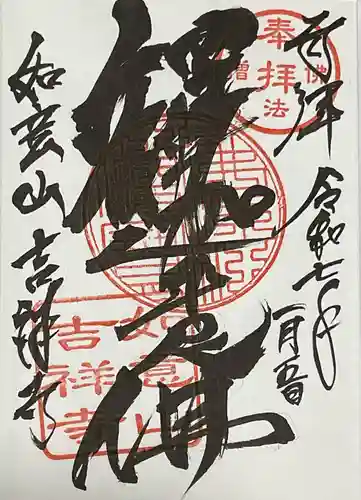 奉拝
令和七年
一月吉日
釋迦牟尼佛
如意山吉祥寺
奉拝
佛法僧
如意山
吉祥寺